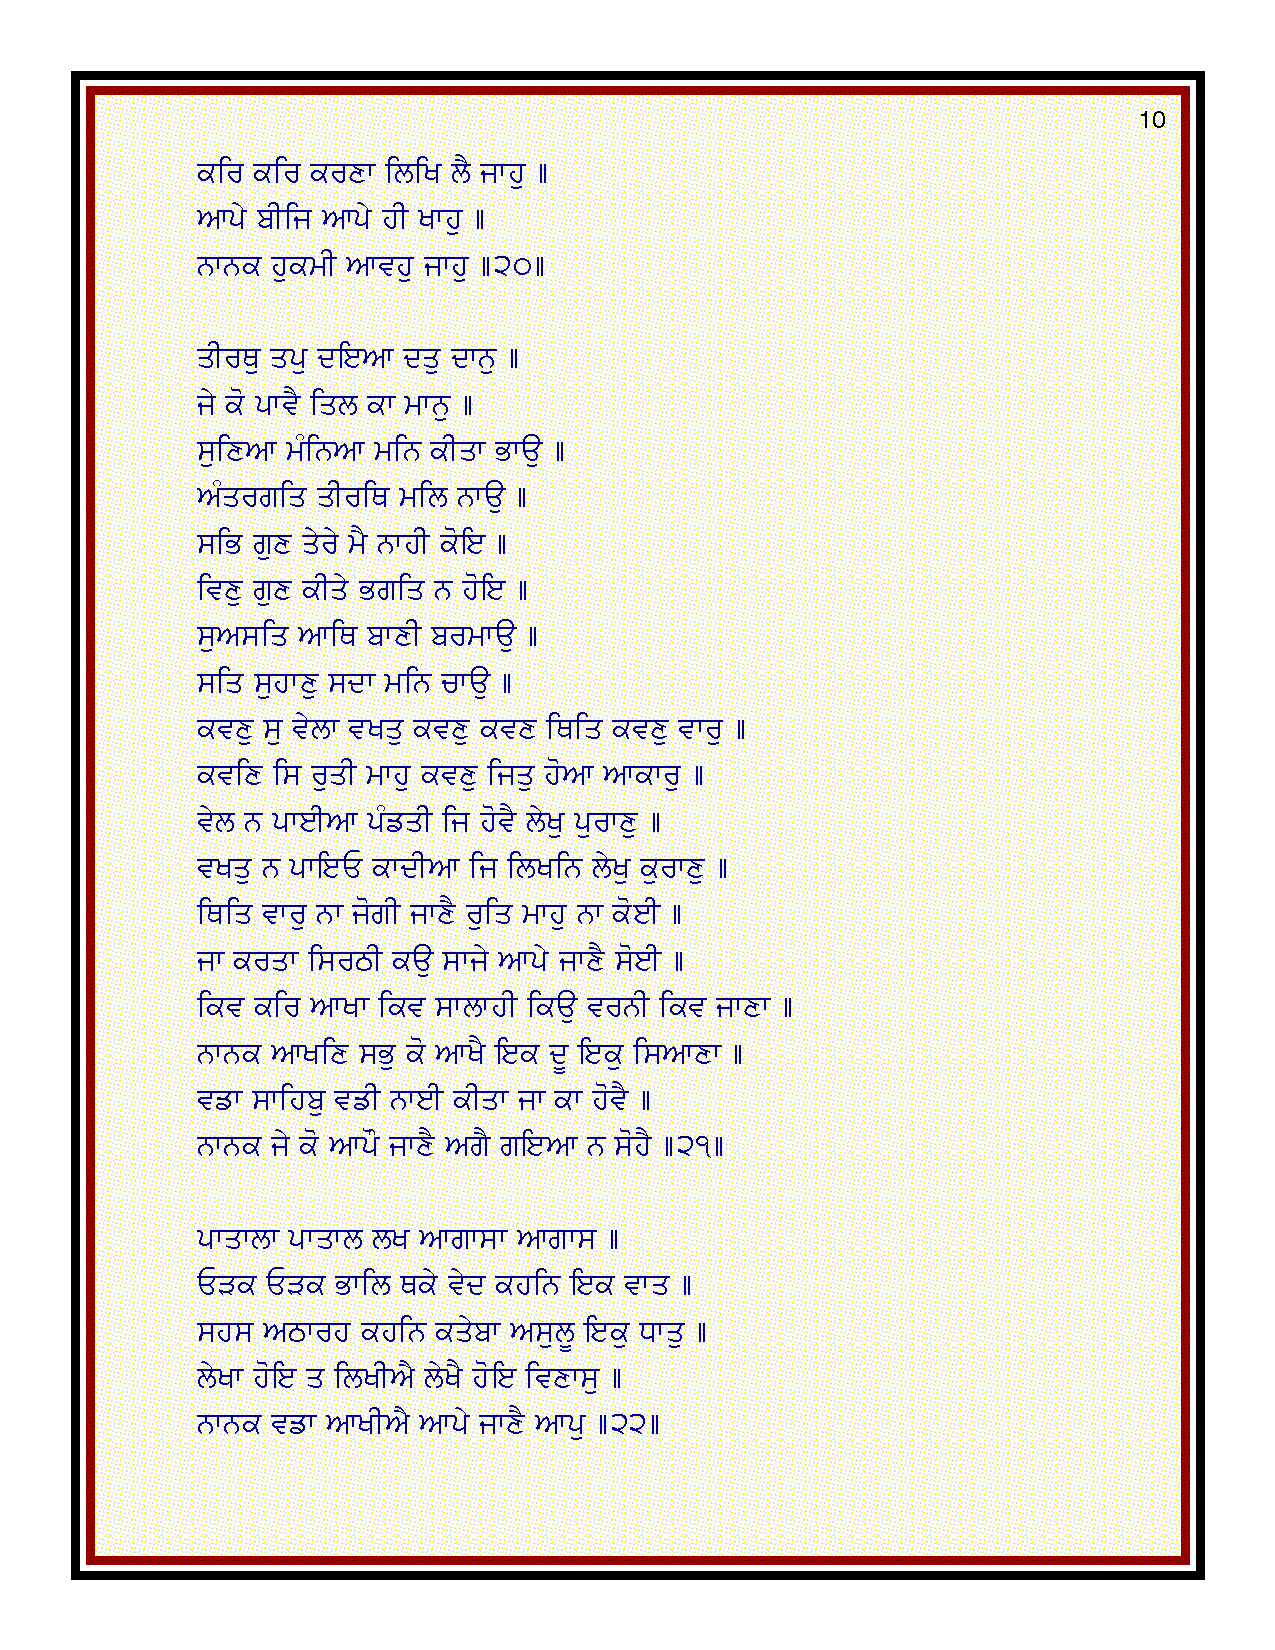 10
ਕਰਿ ਕਰਿ ਕਰਣਾ ਲਿਖਿ ਲੈ ਜਾਹੁ ॥
ਆਪੇ ਬੀਜਿ ਆਪੇ ਹੀ ਖਾਹੁ ॥
ਨਾਨਕ ਹੁਕਮੀ ਆਵਹੁ ਜਾਹੁ ॥੨੦॥
ਤੀਰਥੁ ਤਪੁ ਦਇਆ ਦਤੁ ਦਾਨੁ ॥
ਜੇ ਕੋ ਪਾਵੈ ਤਿਲ ਕਾ ਮਾਨੁ ॥
ਸੁਣਿਆ ਮੰਨਿਆ ਮਨਿ ਕੀਤਾ ਭਾਉ ॥
ਅੰਤਰਗਤਿ ਤੀਰਥਿ ਮਲਿ ਨਾਉ ॥
ਸਭਿ ਗੁਣ ਤੇਰੇ ਮੈ ਨਾਹੀ ਕੋਇ ॥
ਵਿਣੁ ਗੁਣ ਕੀਤੇ ਭਗਤਿ ਨ ਹੋਇ ॥
ਸੁਅਸਤਿ ਆਥਿ ਬਾਣੀ ਬਰਮਾਉ ॥
ਸਤਿ ਸੁਹਾਣੁ ਸਦਾ ਮਨਿ ਚਾਉ ॥
ਕਵਣੁ ਸੁ ਵੇਲਾ ਵਖਤੁ ਕਵਣੁ ਕਵਣ ਥਿਤਿ ਕਵਣੁ ਵਾਰੁ ॥
ਕਵਣਿ ਸਿ ਰੁਤੀ ਮਾਹੁ ਕਵਣੁ ਜਿਤੁ ਹੋਆ ਆਕਾਰੁ ॥
ਵੇਲ ਨ ਪਾਈਆ ਪੰਡਤੀ ਜਿ ਹੋਵੈ ਲੇਖੁ ਪੁਰਾਣੁ ॥
ਵਖਤੁ ਨ ਪਾਇਓ ਕਾਦੀਆ ਜਿ ਲਿਖਨਿ ਲੇਖੁ ਕੁਰਾਣੁ ॥
ਥਿਤਿ ਵਾਰੁ ਨਾ ਜੋਗੀ ਜਾਣੈ ਰੁਤਿ ਮਾਹੁ ਨਾ ਕੋਈ ॥
ਜਾ ਕਰਤਾ ਸਿਰਠੀ ਕਉ ਸਾਜੇ ਆਪੇ ਜਾਣੈ ਸੋਈ ॥
ਕਿਵ ਕਰਿ ਆਖਾ ਕਿਵ ਸਾਲਾਹੀ ਕਿਉ ਵਰਨੀ ਕਿਵ ਜਾਣਾ ॥
ਨਾਨਕ ਆਖਣਿ ਸਭੁ ਕੋ ਆਖੈ ਇਕ ਦੂ ਇਕੁ ਸਿਆਣਾ ॥
ਵਡਾ ਸਾਹਿਬੁ ਵਡੀ ਨਾਈ ਕੀਤਾ ਜਾ ਕਾ ਹੋਵੈ ॥
ਨਾਨਕ ਜੇ ਕੋ ਆਪੌ ਜਾਣੈ ਅਗੈ ਗਇਆ ਨ ਸੋਹੈ ॥੨੧॥
ਪਾਤਾਲਾ ਪਾਤਾਲ ਲਖ ਆਗਾਸਾ ਆਗਾਸ ॥
ਓੜਕ ਓੜਕ ਭਾਲਿ ਥਕੇ ਵੇਦ ਕਹਨਿ ਇਕ ਵਾਤ ॥
ਸਹਸ ਅਠਾਰਹ ਕਹਨਿ ਕਤੇਬਾ ਅਸੁਲੂ ਇਕੁ ਧਾਤੁ ॥
ਲੇਖਾ ਹੋਇ ਤ ਲਿਖੀਐ ਲੇਖੈ ਹੋਇ ਵਿਣਾਸੁ ॥
ਨਾਨਕ ਵਡਾ ਆਖੀਐ ਆਪੇ ਜਾਣੈ ਆਪੁ ॥੨੨॥